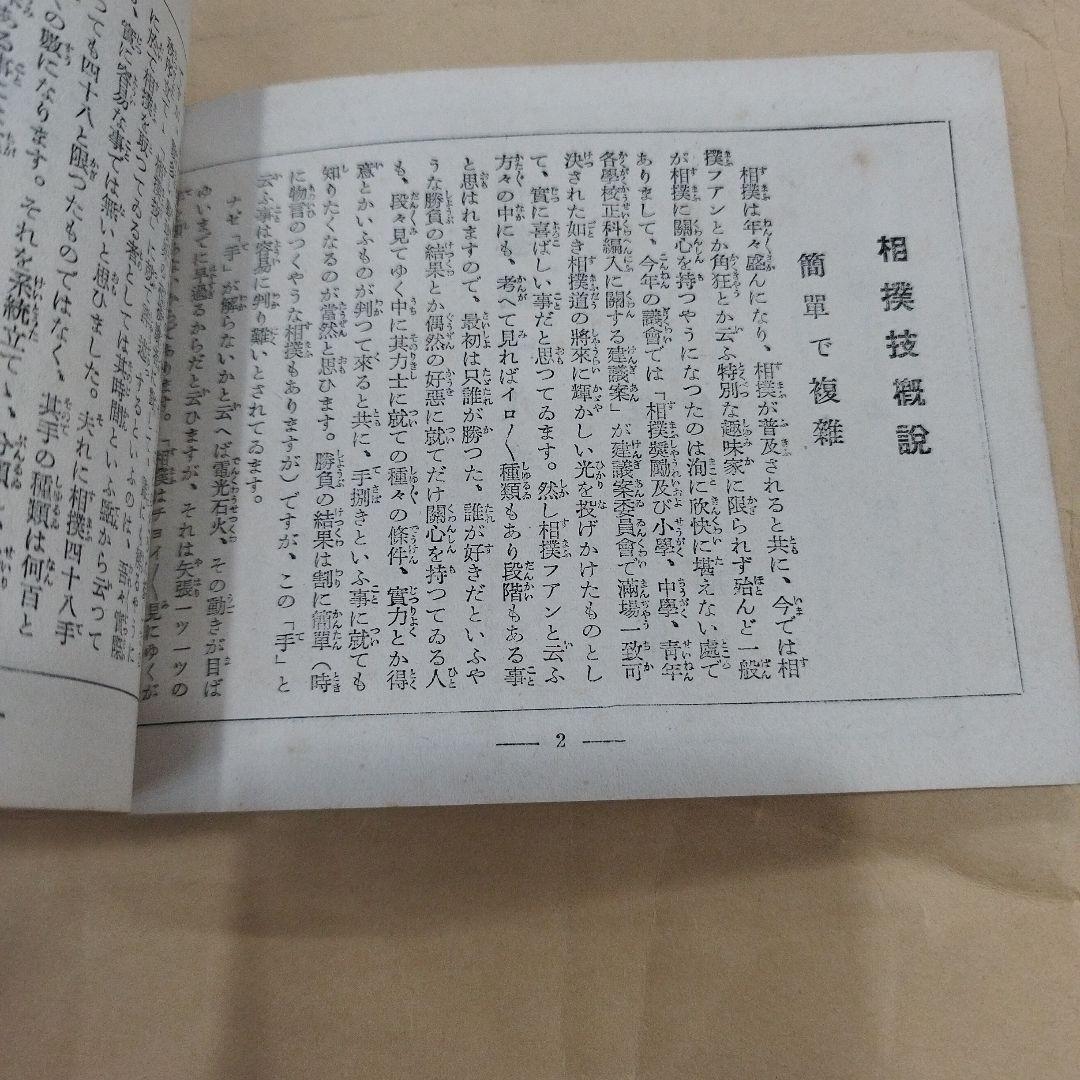 相撲技概說
簡單で複雜
相撲は年々盛んになり、相撲が普及されると共に、今では相
撲フアンとか角狂とか云ふ特別な趣味家に限られず殆んど一般
が相撲に關心を持つやうになつたのは洵に欣快に堪えない處で
ありまして、今年の議會では「相撲奬勵及び小學、中學、靑年
各學校正科編入に關する建議案」が建議案委員會で滿場一致可
決された如き相撲道の將來に輝かしい光を投げかけたものとし
て、實に喜ばしい事だと思つてゐます。然し相撲フアンと云ふ
方々の中にも、考へて見ればイロ〳〵種類もあり段階もある事
と思はれますので、最初は只誰が勝つた、誰が好きだといふや
うな勝負の結果とか偶然の好惡に就てだけ關心を持つてゐる人
も、段々見てゆく中に其力士に就ての種々の條件、實力とか得
意とかいふものが判つて來ると共に、手捌きといふ事に就ても
知りたくなるのが當然と思ひます。勝負の結果は割に簡單（時
に物言のつくやうな相撲もありますが）ですが、この「手」と
云ふ事は容易に判り難いとされてゐます。
ナゼ「手」が解らないかと云へば電光石火、その動きが目ば
ゆいまでに早過るからだと云ひますが、それは矢張一ツ一ツの
「相撲はチョイ〳〵見にゆくが
2
に於て相撲を
實に容易な事では無いと思ひました。夫れに相撲四十八手
つても四十八と限つたものではなく、其手の種類は何百と
の數になります。それを系統立てい、分類